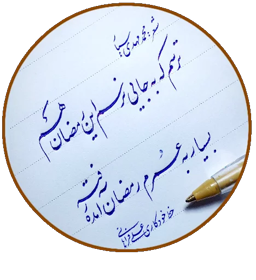 شعر: محمد مهدی سیار
ترسم که به جایی نرسم این رمضان هم
بسیار به عمرم رمضان آمده رفته
خط خودکاری علی قربانی